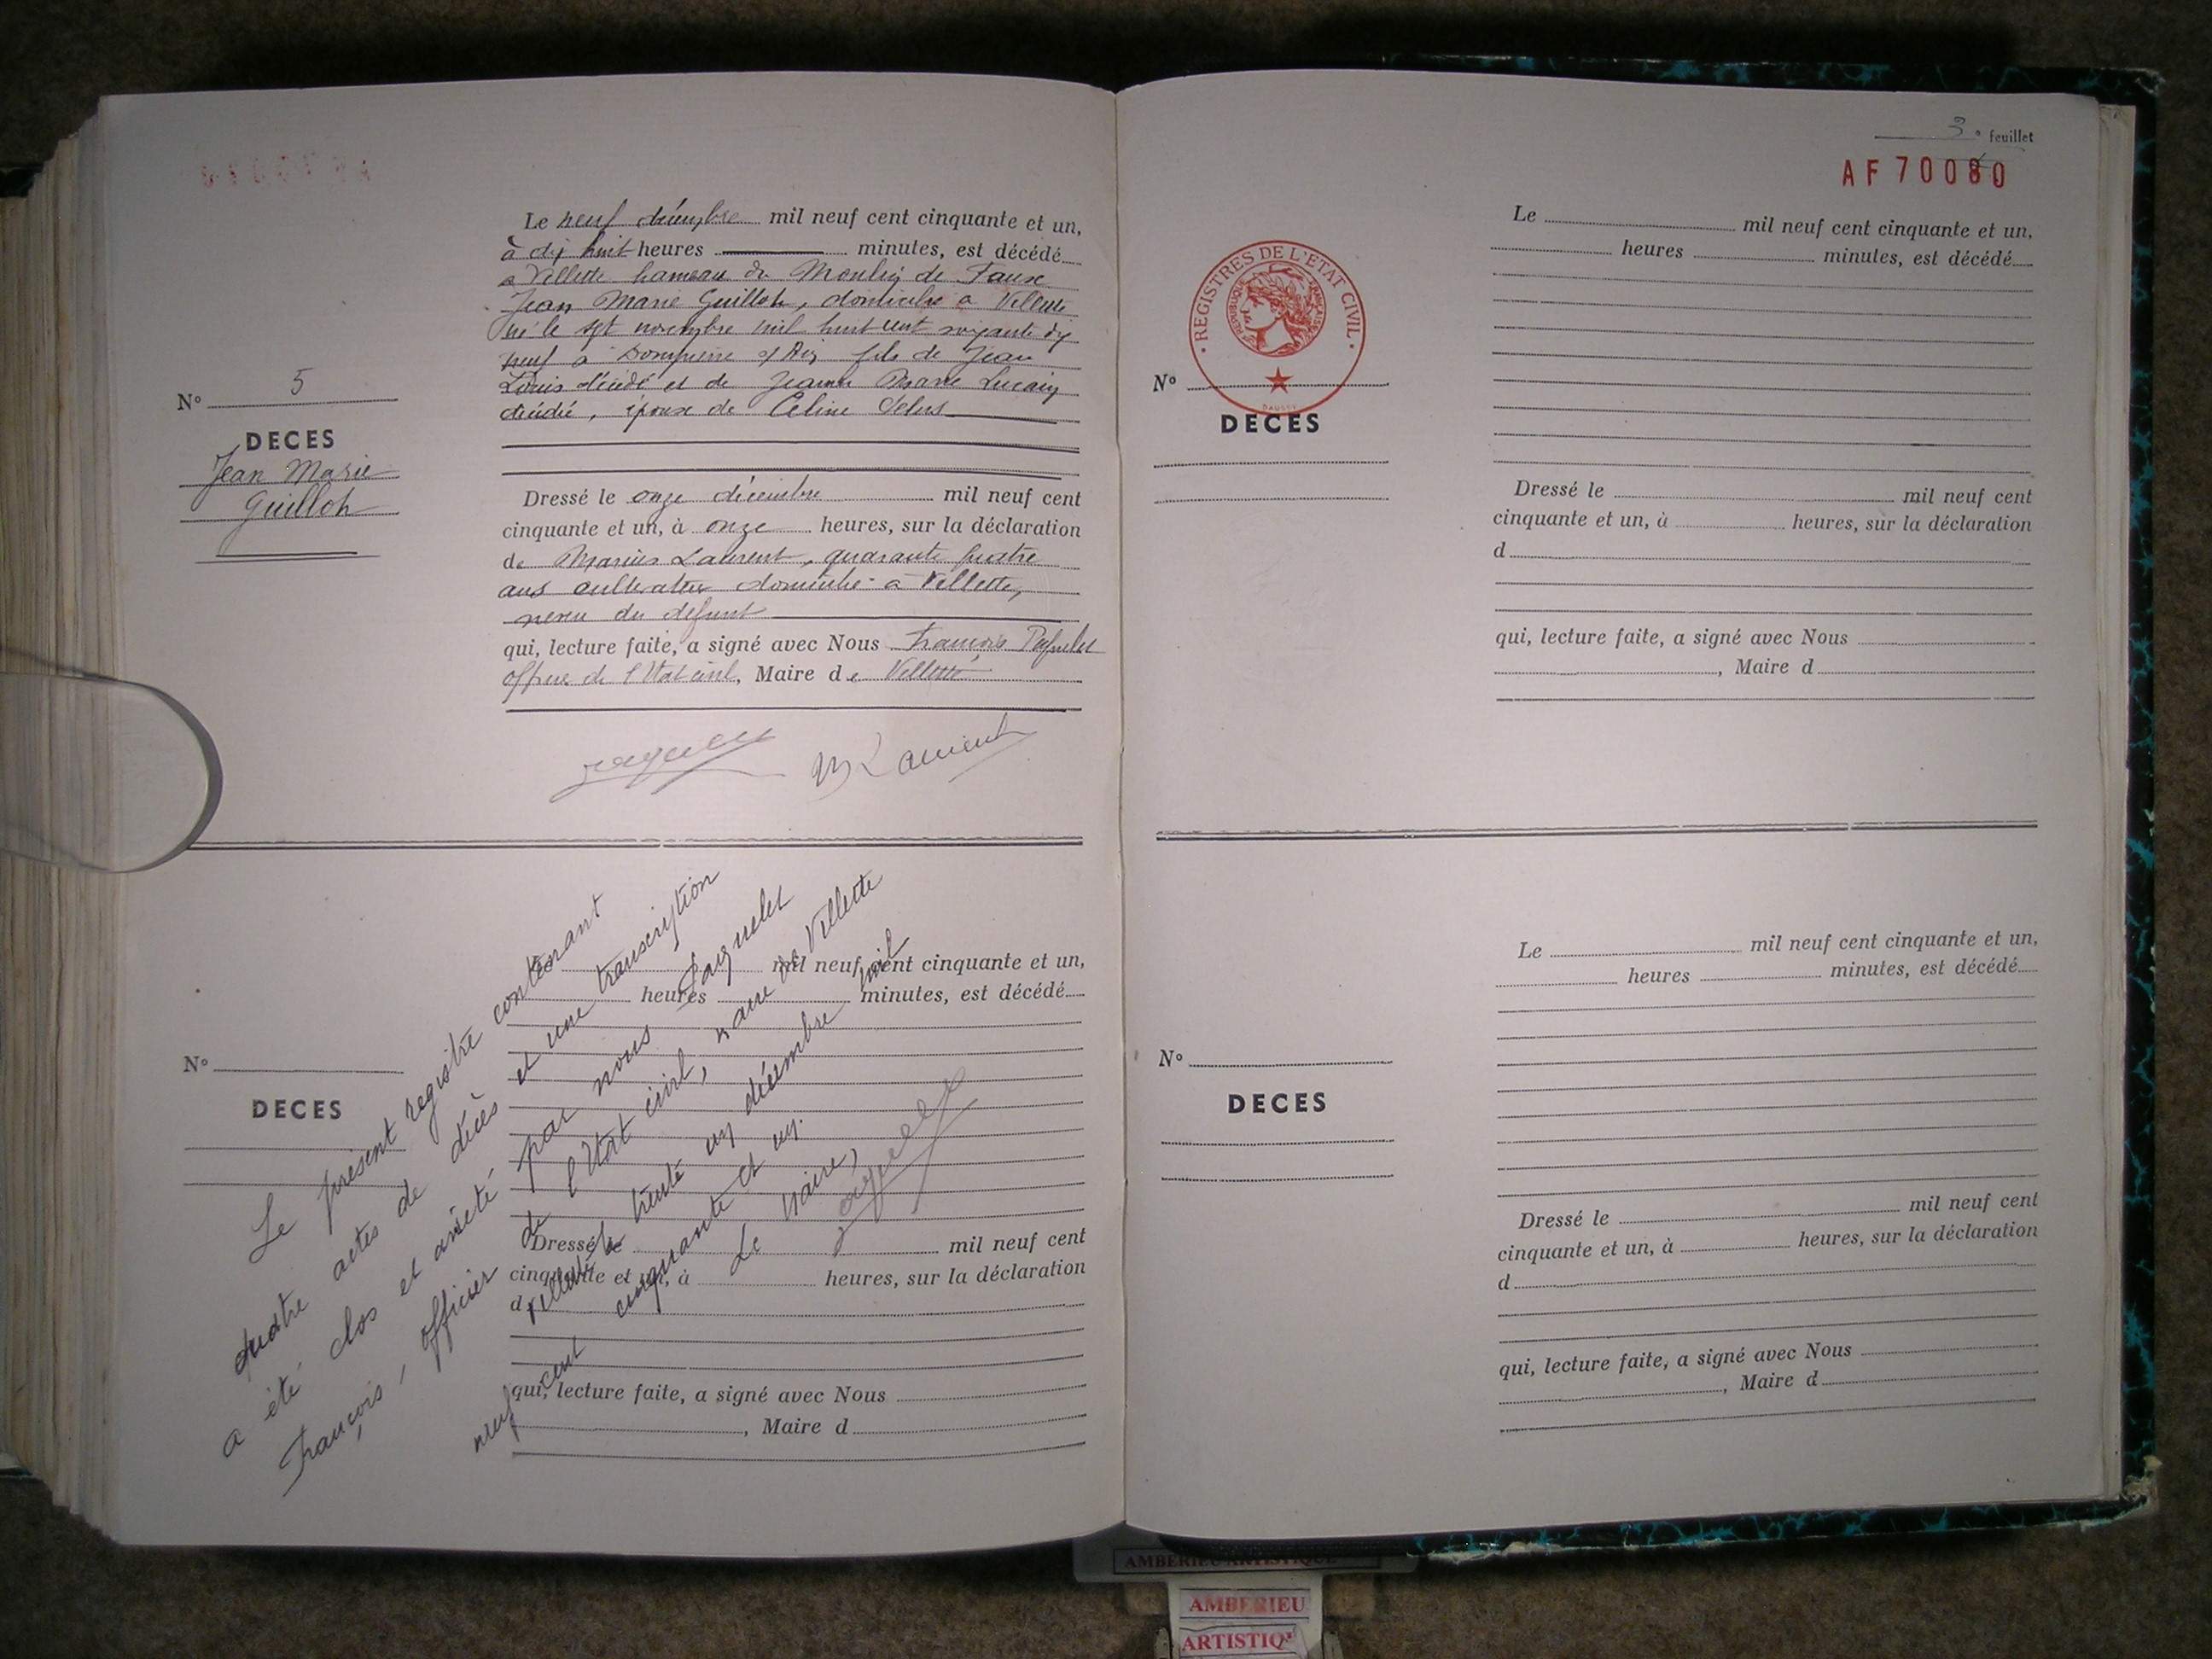 Le neuf décembre mil neuf cent cinquante et un,
à dix huit heures minutes, est décédé
a Villette hameau du Moulin de Faux
Jean Marie Guillon, domicilié a Villette
né le sept novembre mil huit cent soixante dix
neuf a Dompierre s/ Ain fils de Jean
Louis décédé et de Jeanne Marie
décédée, époux de Celine
N° 5
DECES
Jean Marie
Guillon
Dressé le onze décembre mil neuf cent
cinquante et un, à onze heures, sur la déclaration
de Marius Laurent, quarante quatre
ans cultivateur domicilié a Villette,
neveu du défunt
qui, lecture faite, a signé avec Nous François
officier de l'Etat civil, Maire de Villette
M Laurent
Le présent registre contenant
quatre actes de décès et une transcription
a été clos et arrêté par nous
François, officier de l'Etat civil, maire de Villette
trente un décembre mil
neuf cent cinquante et un.
Le Maire,
Le mil neuf cent cinquante et un,
heures minutes, est décédé
N°
DECES
Dressé le mil neuf cent
cinquante et un, à heures, sur la déclaration
d
qui, lecture faite, a signé avec Nous
, Maire d
3e feuillet
AF 70080
Le mil neuf cent cinquante et un,
heures minutes, est décédé
REGISTRES DE L'ETAT CIVIL
REPUBLIQUE FRANÇAISE
N°
DECES
Dressé le mil neuf cent
cinquante et un, à heures, sur la déclaration
d
qui, lecture faite, a signé avec Nous
, Maire d
Le mil neuf cent cinquante et un,
heures minutes, est décédé
N°
DECES
Dressé le mil neuf cent
cinquante et un, à heures, sur la déclaration
d
qui, lecture faite, a signé avec Nous
, Maire d
AMBERIEU ARTISTIQUE
AMBERIEU
ARTISTIQ